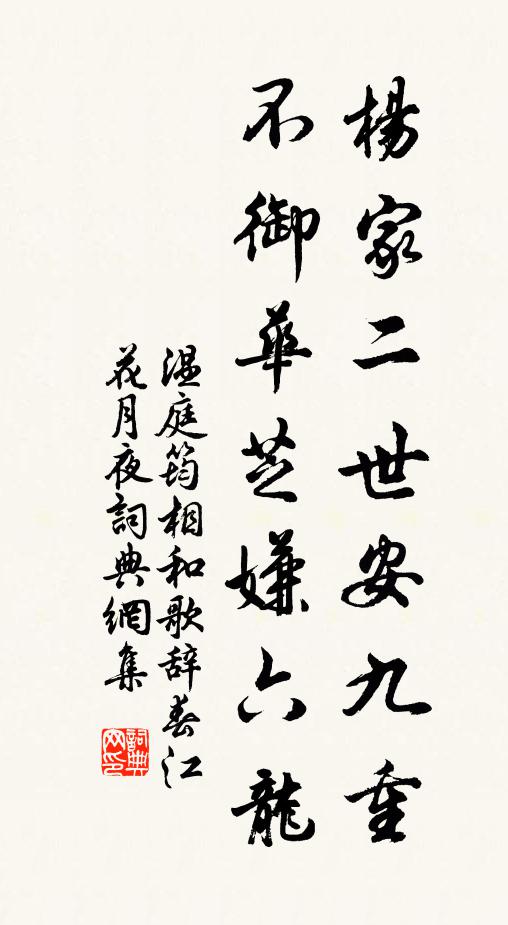 楊家二世安九重
不御華芝嫌六龍
温庭筠相和歌辞春江
花月夜詞典網集
詞典
网印